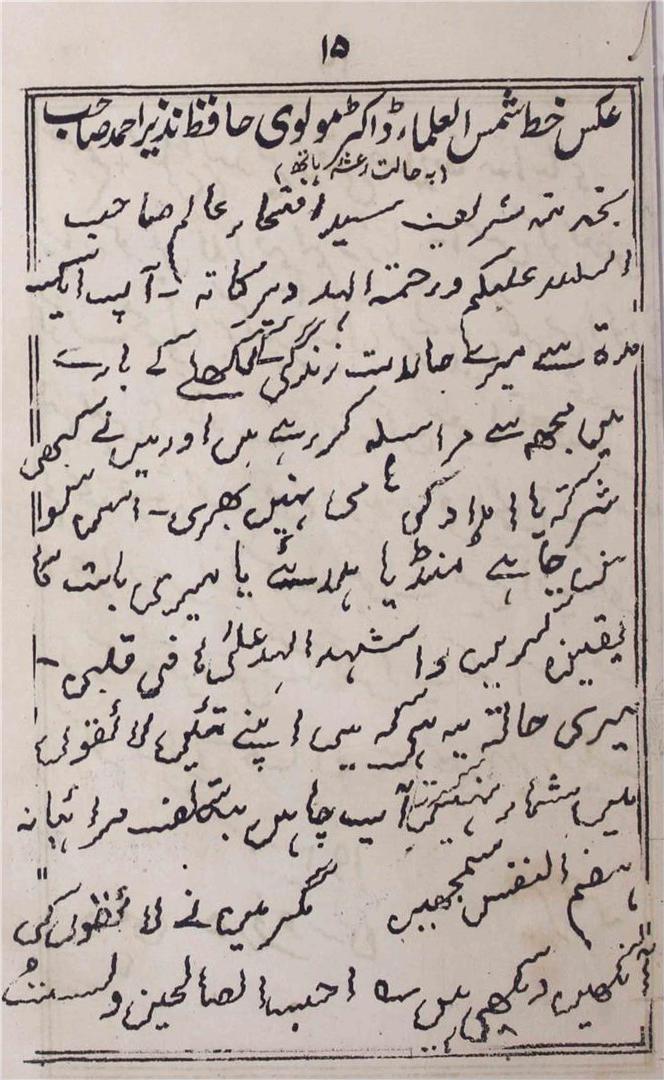 ۱۵
عکس خط شمس العلماء ڈاکٹر مولوی حافظ نذیر احمد صاحب
(بہ حالت رعشہ ہاتھ)
بخدمتہ شریف سید افتخار عالم صاحب
السلام علیکم ورحمتہ اللہ وبرکاتہ ۔ آپ ایک
مدۃ سے میرے حالات زندگی کے لکھنے کے بارے
میں مجھ سے مراسلہ کر رہے ہیں اور میں نے کبھی
شرکتہ یا امداد کی ہامی نہیں بھری ۔ اسمیں
چاہے منڈیا ہلائیے یا میری بابت کا
یقین کریں واشہد اللہ علیٰ ما فی قلبی ۔
میری حالتہ یہ ہی کہ میں اپنے تئیں لائقوں
میں شمار نہیں کرتا آپ چاہیں بتکلف
ہضم النفس سمجھیں مگر میں نے لائقوں کی
آنکھیں دیکھی ہیں ؎ احب الصالحین ولستُ